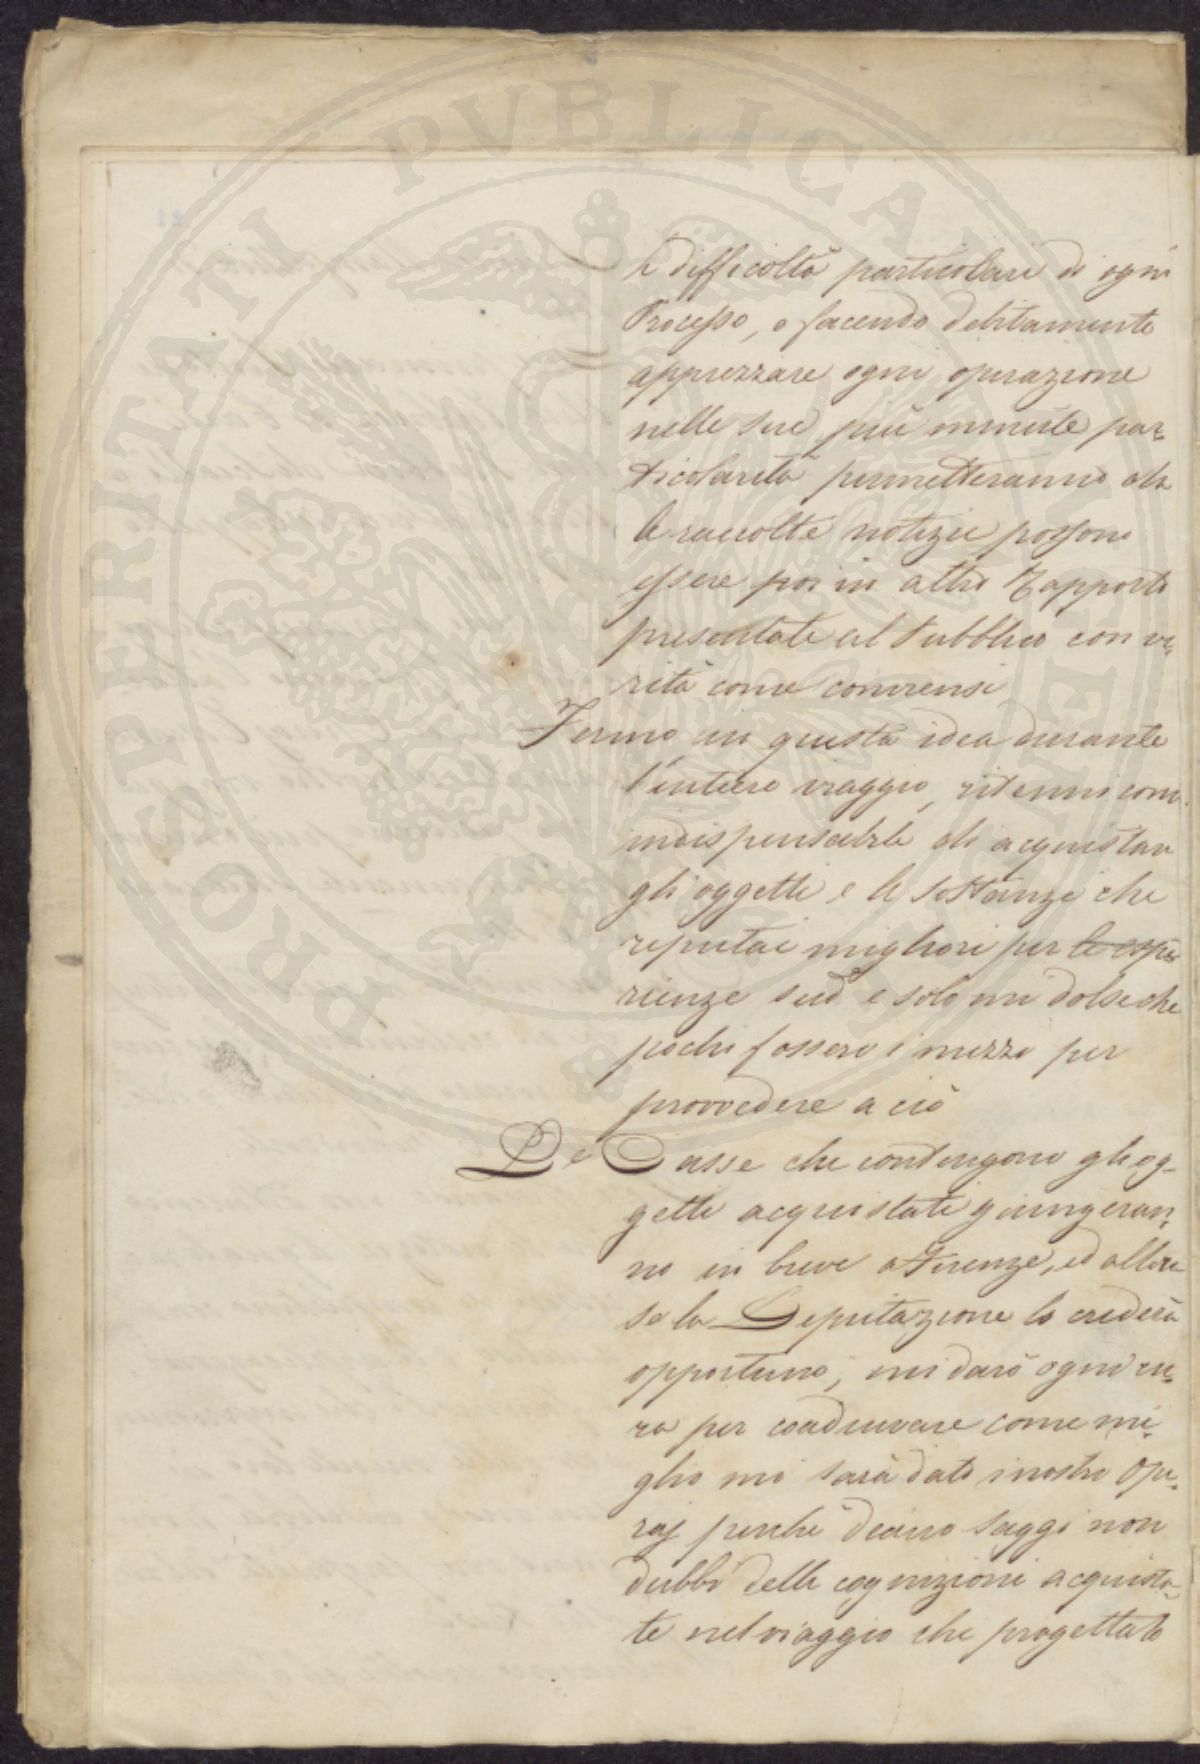 PROSPERITATI PVBLICAE
le difficoltà particolari di ogni
Processo, e facendo debitamente
apprezzare ogni operazione
nelle sue più minute par-
ticolarità permetteranno che
le raccolte notizie possono
essere poi in altro Rapporto
presentate al Pubblico con ve-
rità come conviensi
Fermo in questa idea durante
l'intiero viaggio, ritenni come
indispensabile di acquistare
gli oggetti e le sostanze che
reputai migliori per le espe-
rienze sud e solo mi dolse che
pochi fossero i mezzi per
provvedere a ciò
Le Casse che contengono gli og-
getti acquistati giungeran-
no in breve a Firenze, ed allora
se la Deputazione lo crederà
opportuno, mi darò ogni cu-
ra per coadiuvare come me-
glio mi sarà dato i nostri Ope-
raj perchè diano saggi non
dubbi delle cognizioni acquista-
te nel viaggio che progettato